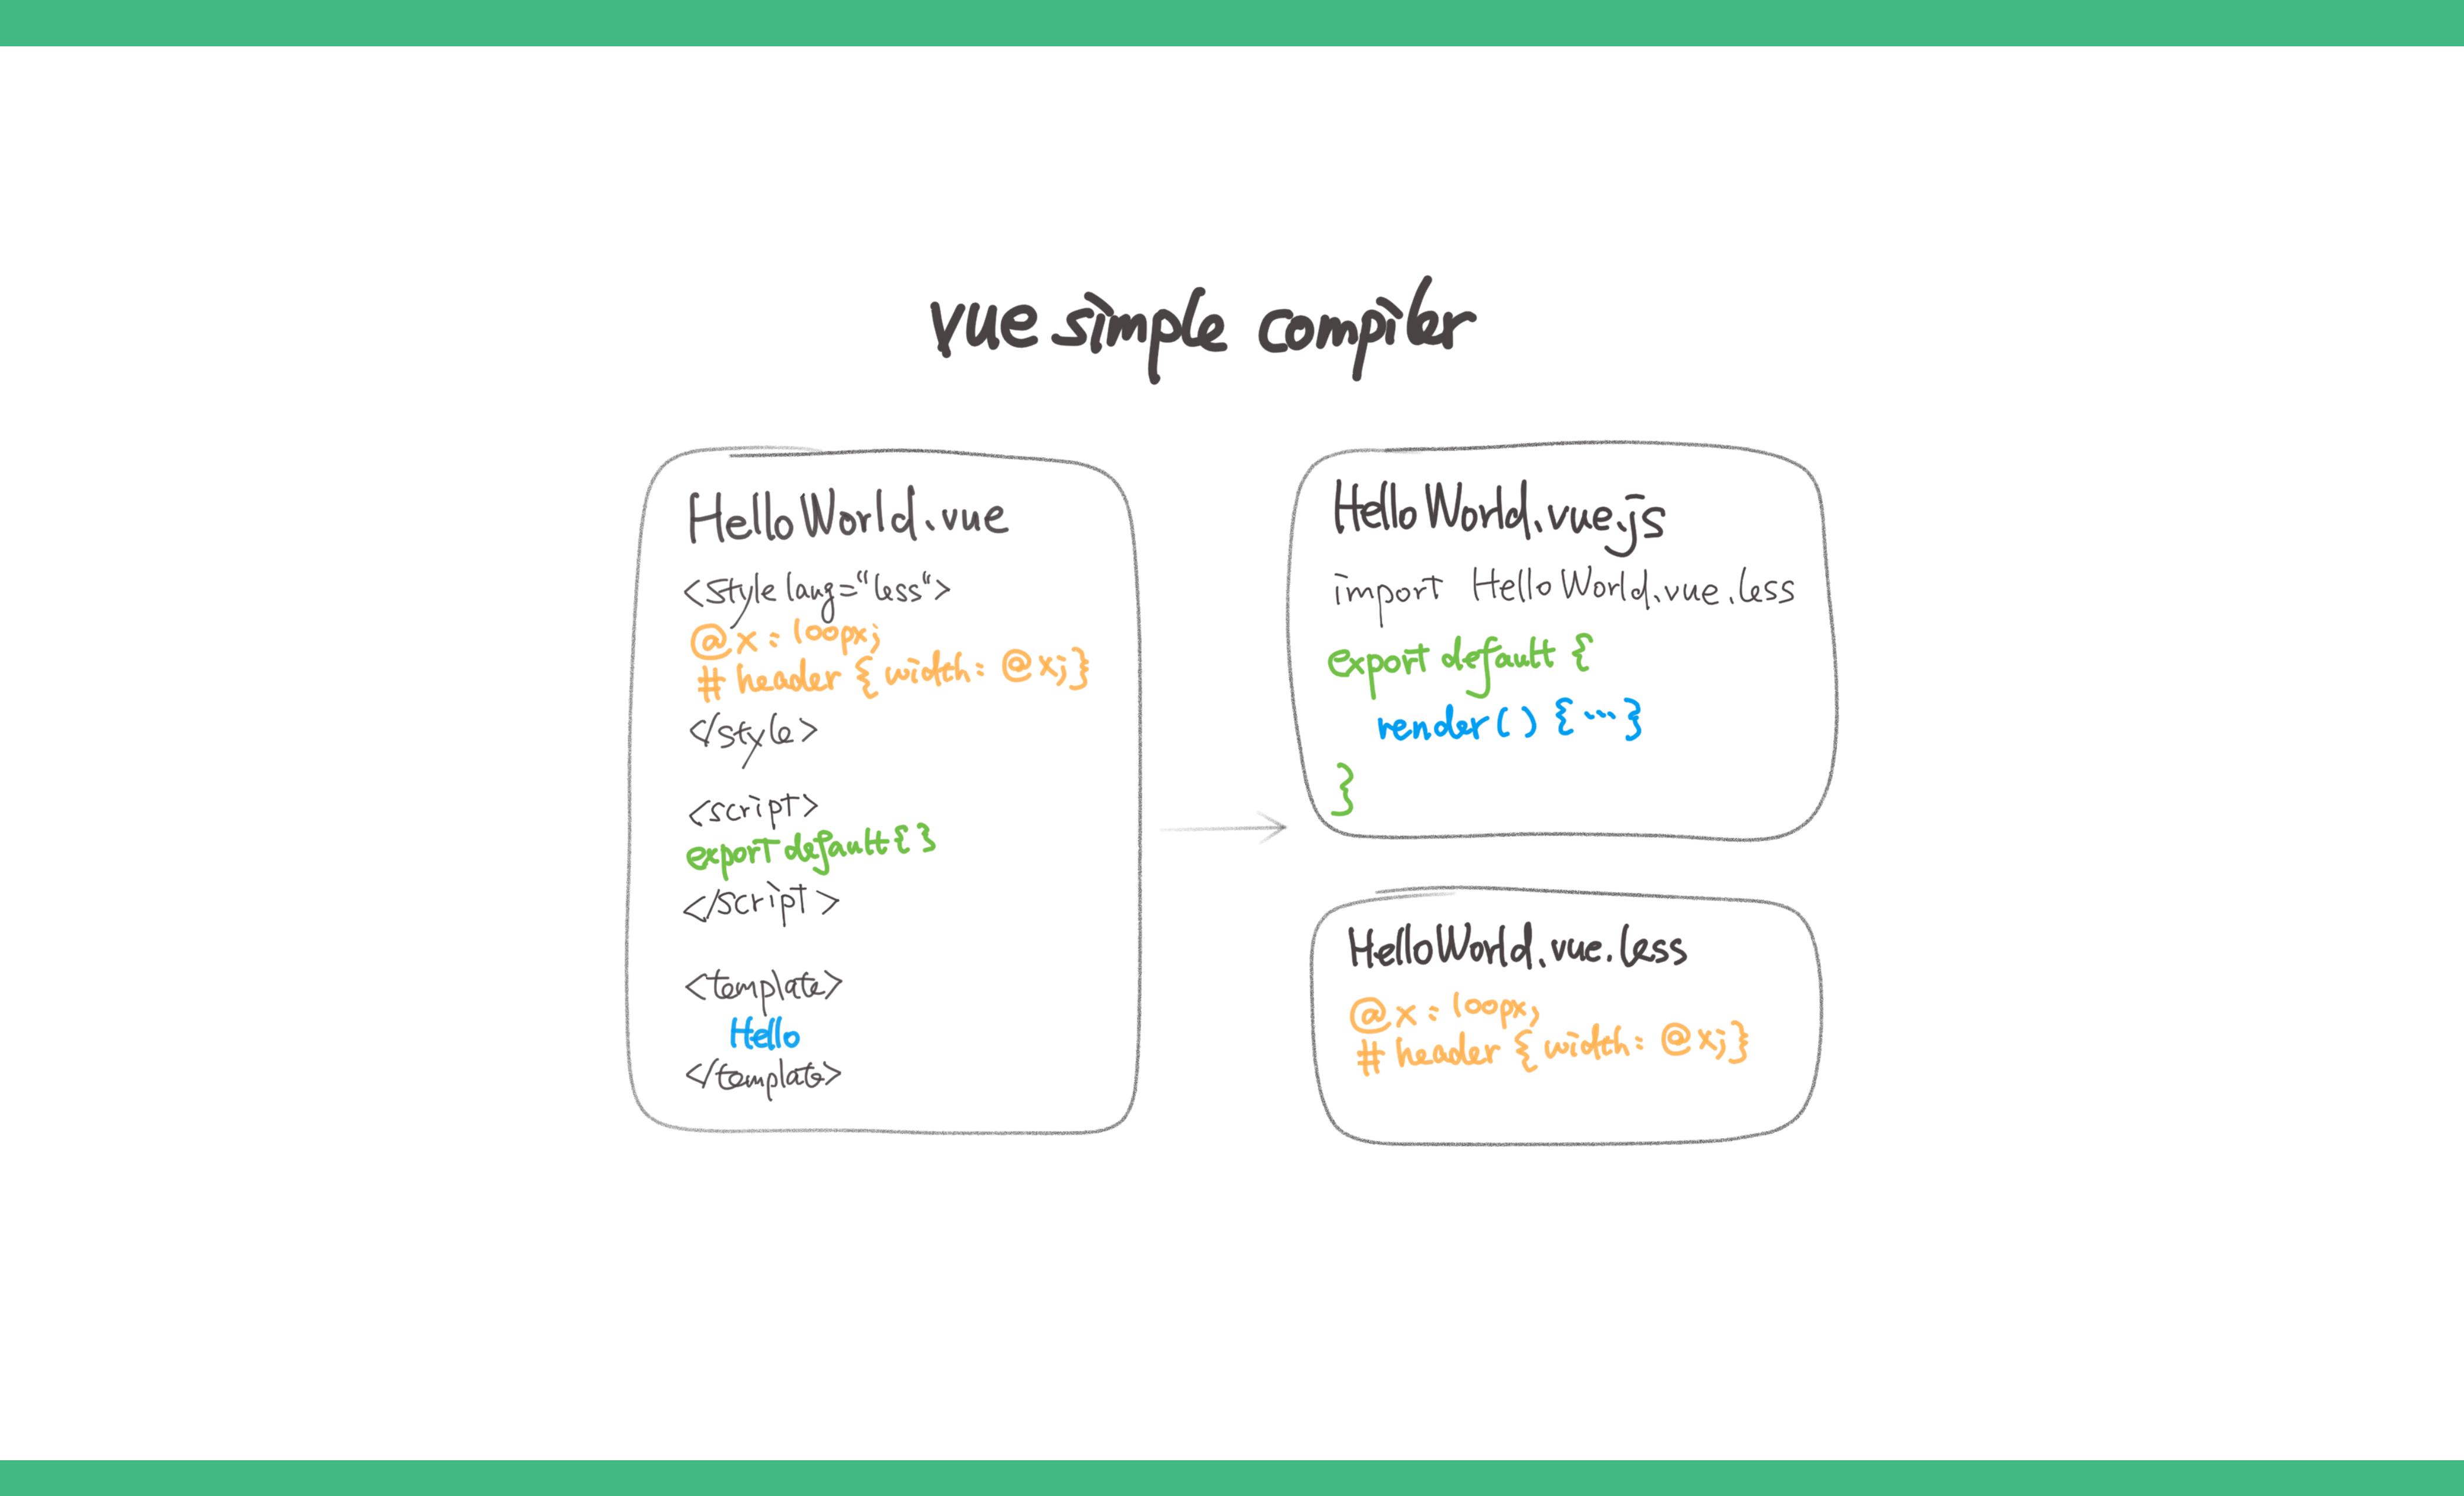 vue simple compiler
HelloWorld.vue
<style lang="less">
@x: 100px;
#header {width: @x;}
</style>
<script>
export default {}
</script>
<template>
Hello
</template>
HelloWorld.vue.js
import HelloWorld.vue.less
export default {
render() {...}
}
HelloWorld.vue.less
@x: 100px;
#header {width: @x;}